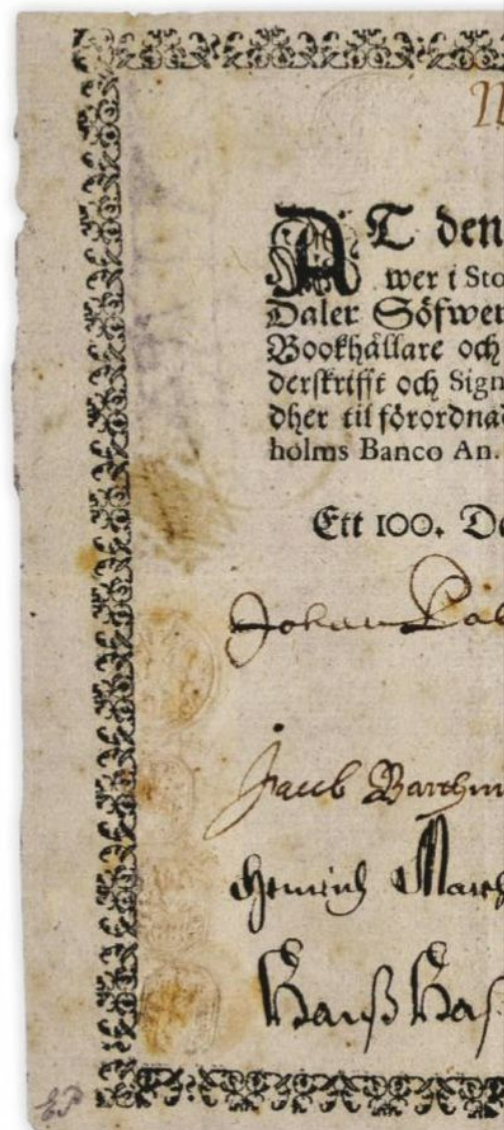 AT den
wer i Sto
Daler Söfwer
Bookhållare och
derskrifft och Sign
dher til förordnad
holms Banco An.
Ett 100. Da
Johan Pal
Jacob
Heinrich
Hanß